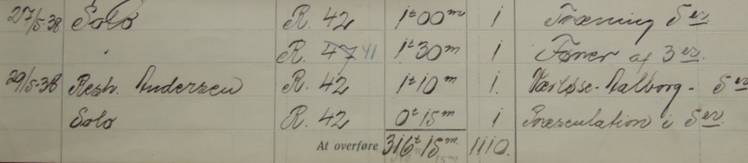 27/5-38 Solo R. 42 1t 00m 1 Træning 5er
" R. 47 41 1t 30m 1 Fører af 3er.
29/5-38 Resh. Andersen R. 42 1t 10m 1 Værløse-Aalborg - 5er
Solo R. 42 0t 15m 1. i 5er
At overføre 316t 15m 1110.